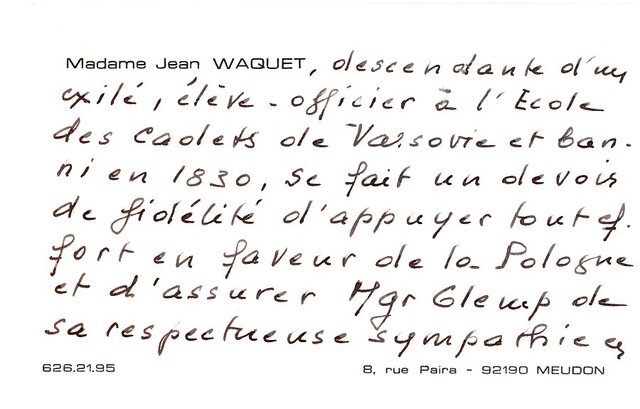 Madame Jean WAQUET, descendante d'un
exilé, élève-officier à l'Ecole
des Cadets de Varsovie et ban-
ni en 1830, se fait un devoir
de fidélité d'appuyer tout ef-
fort en faveur de la Pologne
et d'assurer Mgr Glemp de
sa respectueuse sympathie
626.21.95 8, rue Paira - 92190 MEUDON